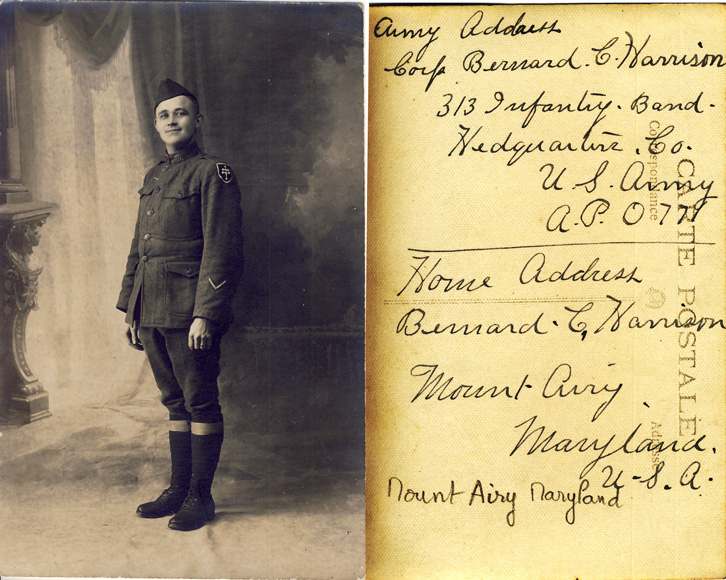 Army Address
Corp Bernard. C. Harrison
313 Infantry. Band.
Hedquarters. Co.
U S. Army
A. P. O 771
Home Address
Bernard. C, Harrison
Mount Airy
Maryland.
U. S. A.
Mount Airy Maryland
CARTE POSTALE
Correspondance
Adresse